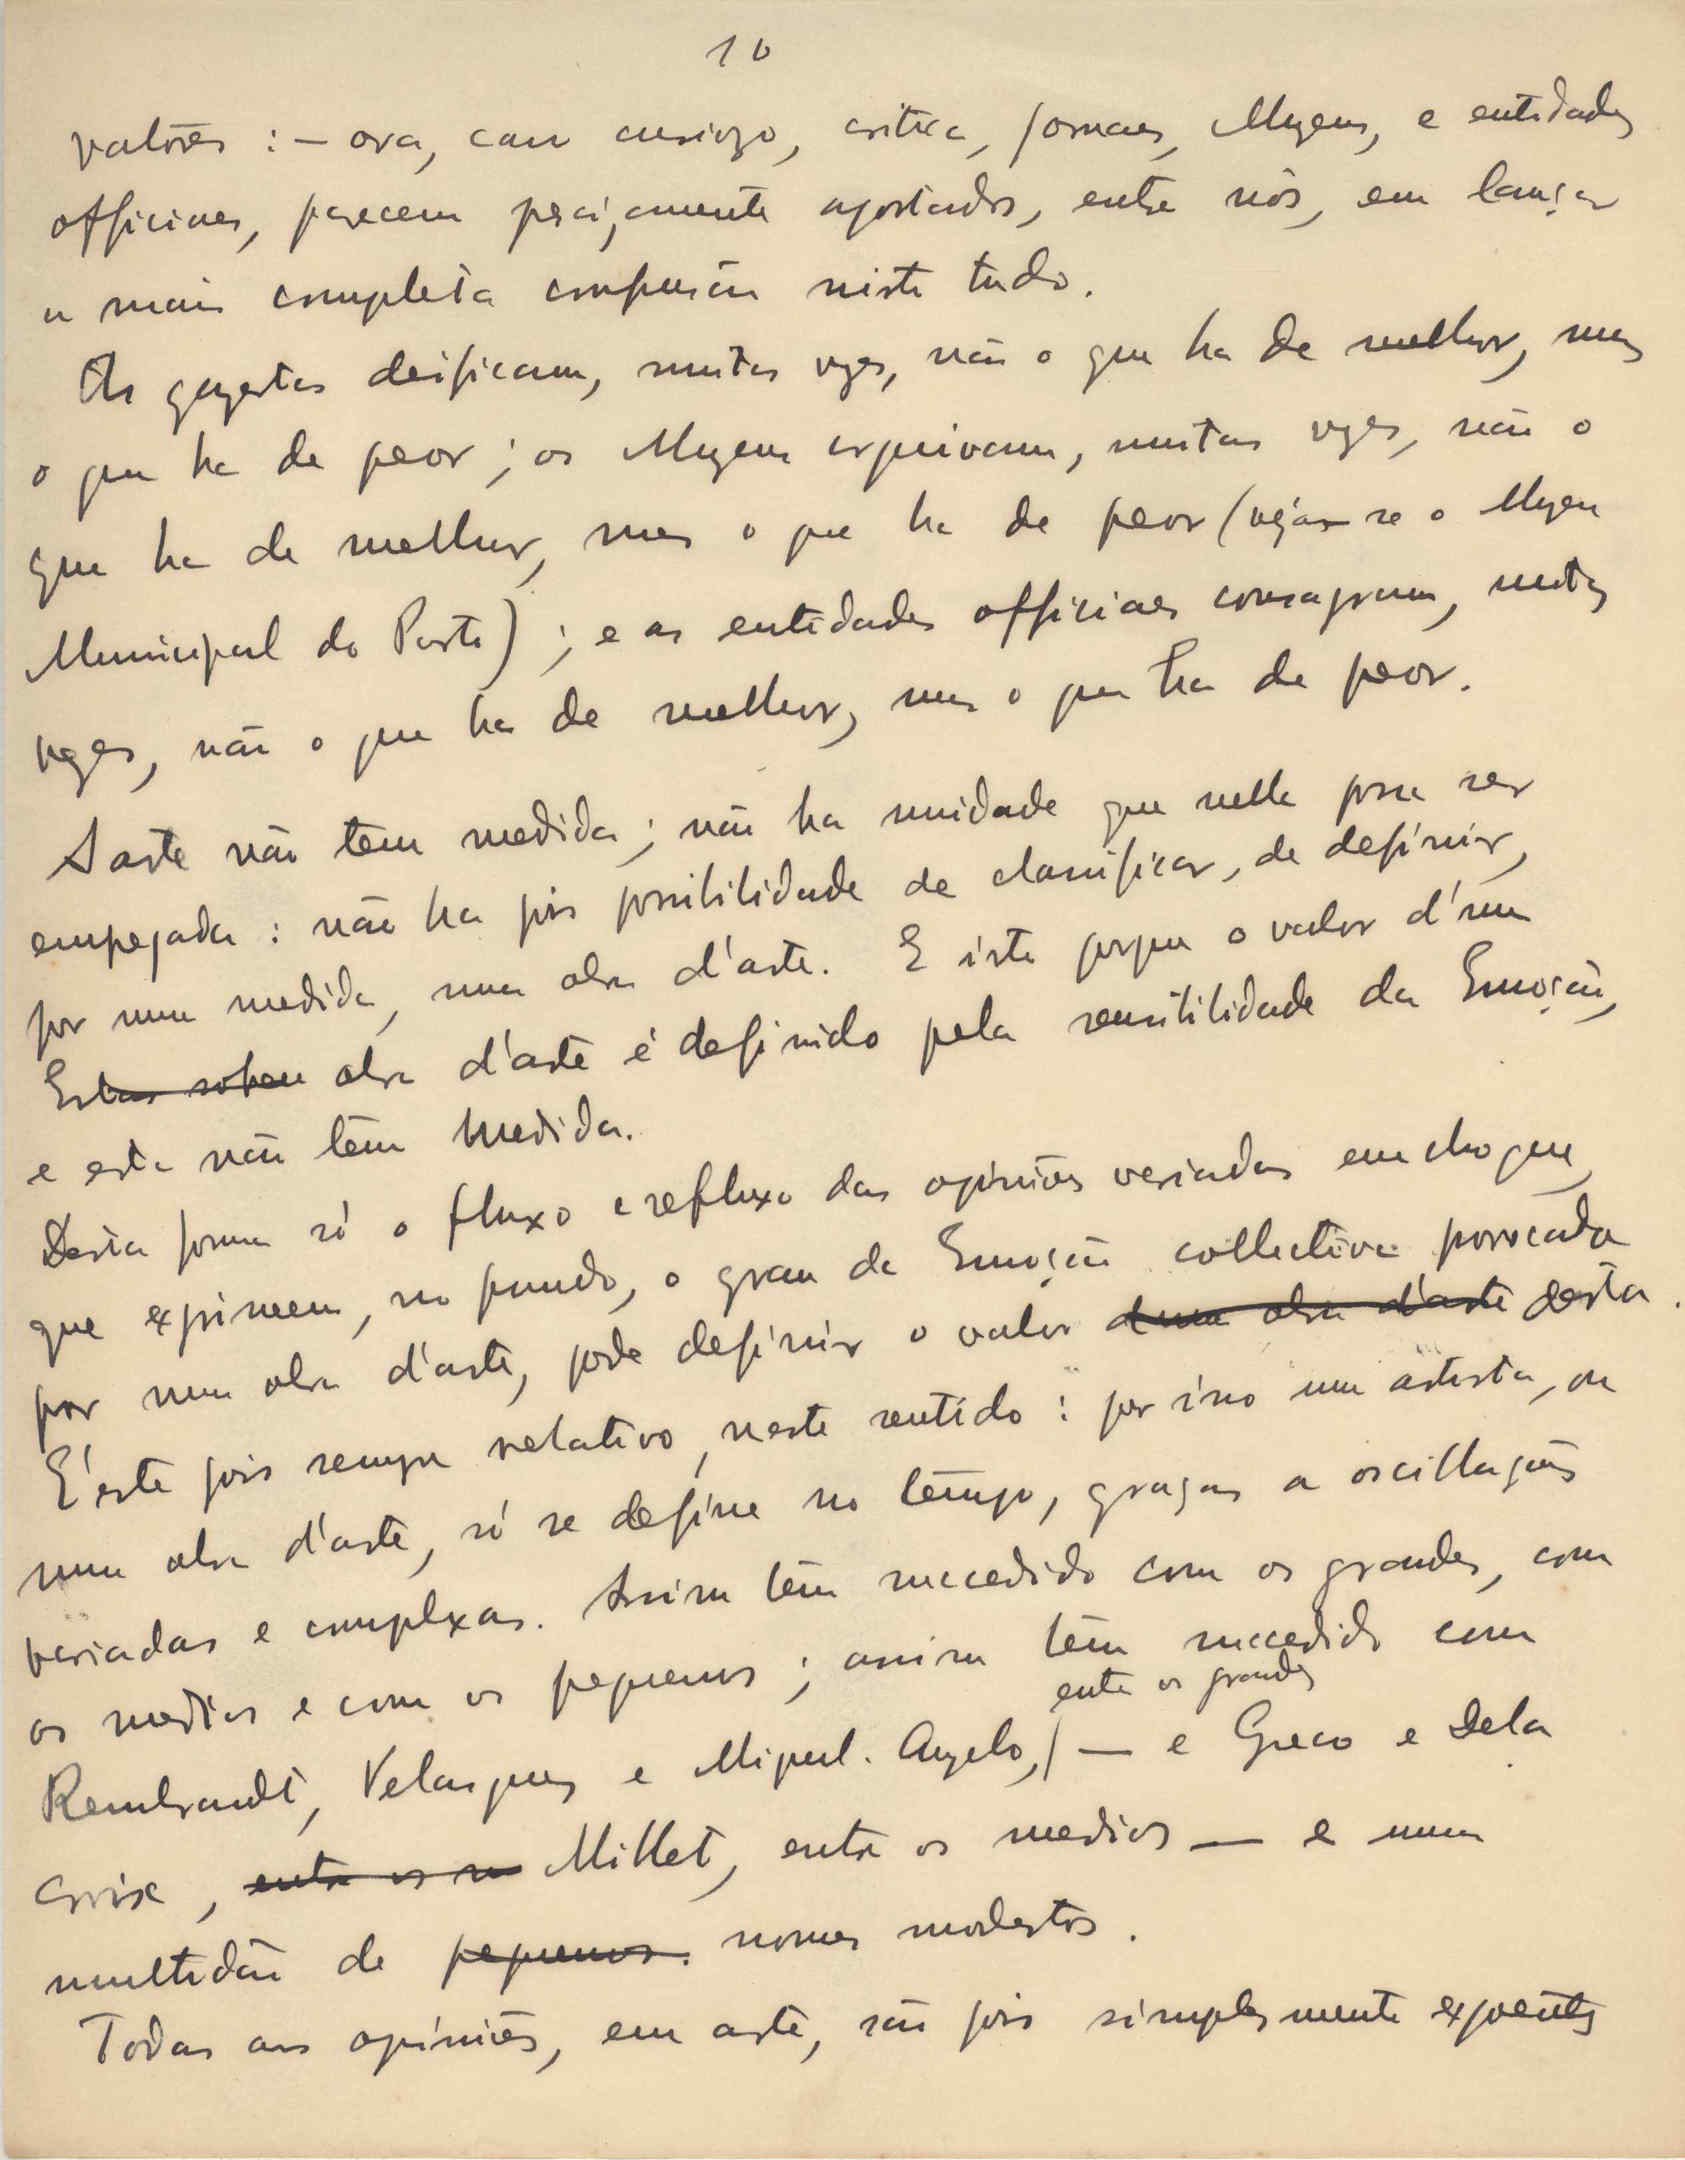 10
valôres : — ora, caso curiozo, critica, jornaes, Muzeus, e entidades
officiaes, parecem precisamente apostados, entre nós, em lançar
a mais completa confusão nisto tudo.
As gazetas deificam, muitas vezes, não o que ha de melhor, mas
o que ha de peor ; os Muzeus arquivam, muitas vezes, não o
que ha de melhor, mas o que ha de peor (vejase o Muzeu
Municipal do Porto) ; e as entidades officiaes consagram, muitas
vezes, não o que ha de melhor, mas o que ha de peor.
A arte não tem medida ; não ha unidade que nella possa ser
empregada : não ha pois possibilidade de classificar, de definir,
por uma medida, uma obra d'arte. E isto porque o valor d'uma
obra d'arte é definido pela sensibilidade da Emoção,
e esta não têm medida.
Desta forma só o fluxo e refluxo das opiniões variadas em choque,
que exprimem, no fundo, o grau da Emoção collectiva provocada
por uma obra d'arte, pode definir o valor ~~duma obra d'arte~~ desta.
E' este pois sempre relativo, neste sentido : por isso um artista, ou
uma obra d'arte, só se define no têmpo, graças a oscillações
variadas e complexas. Assim têm succedido com os grandes, com
os medios e com os pequenos ; assim têm succedido com
entre os grandes
Rembrandt, Velasques e Miguel. Angelo,/ — e Greco e Dela
Croix, ~~entre os m~~ Millet, entre os medios — e uma
multidão de ~~pequenos.~~ nomes modestos.
Todas as opiniões, em arte, são pois simplesmente expoêntes